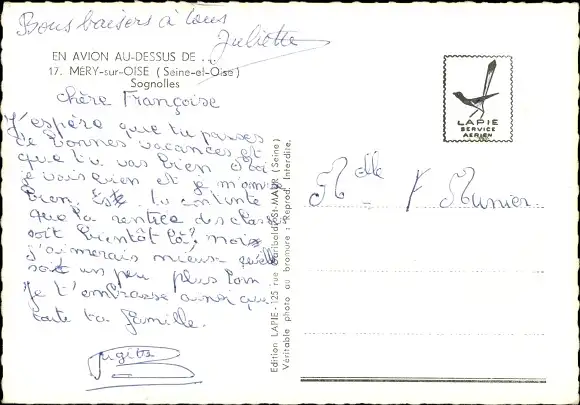 Bons baisers à tous
Juliette
EN AVION AU-DESSUS DE ...
17. MÉRY-sur-OISE (Seine-et-Oise)
Sognolles
chère Françoise
J'espère que tu passes
de bonnes vacances et
que tu vas bien Moi
je vais bien et je m'amuse
bien. Es tu contente
que la rentrée des classes
soit bientôt là? moi
j'aimerais mieux qu'elle
soit un peu plus loin
Je t'embrasse ainsi que
toute ta famille.
LAPIE
SERVICE
AERIEN
Melle F Munier
Edition LAPIE - 125 rue Garibaldi St-MAUR (Seine)
Véritable photo au bromure : Reprod. Interdite.